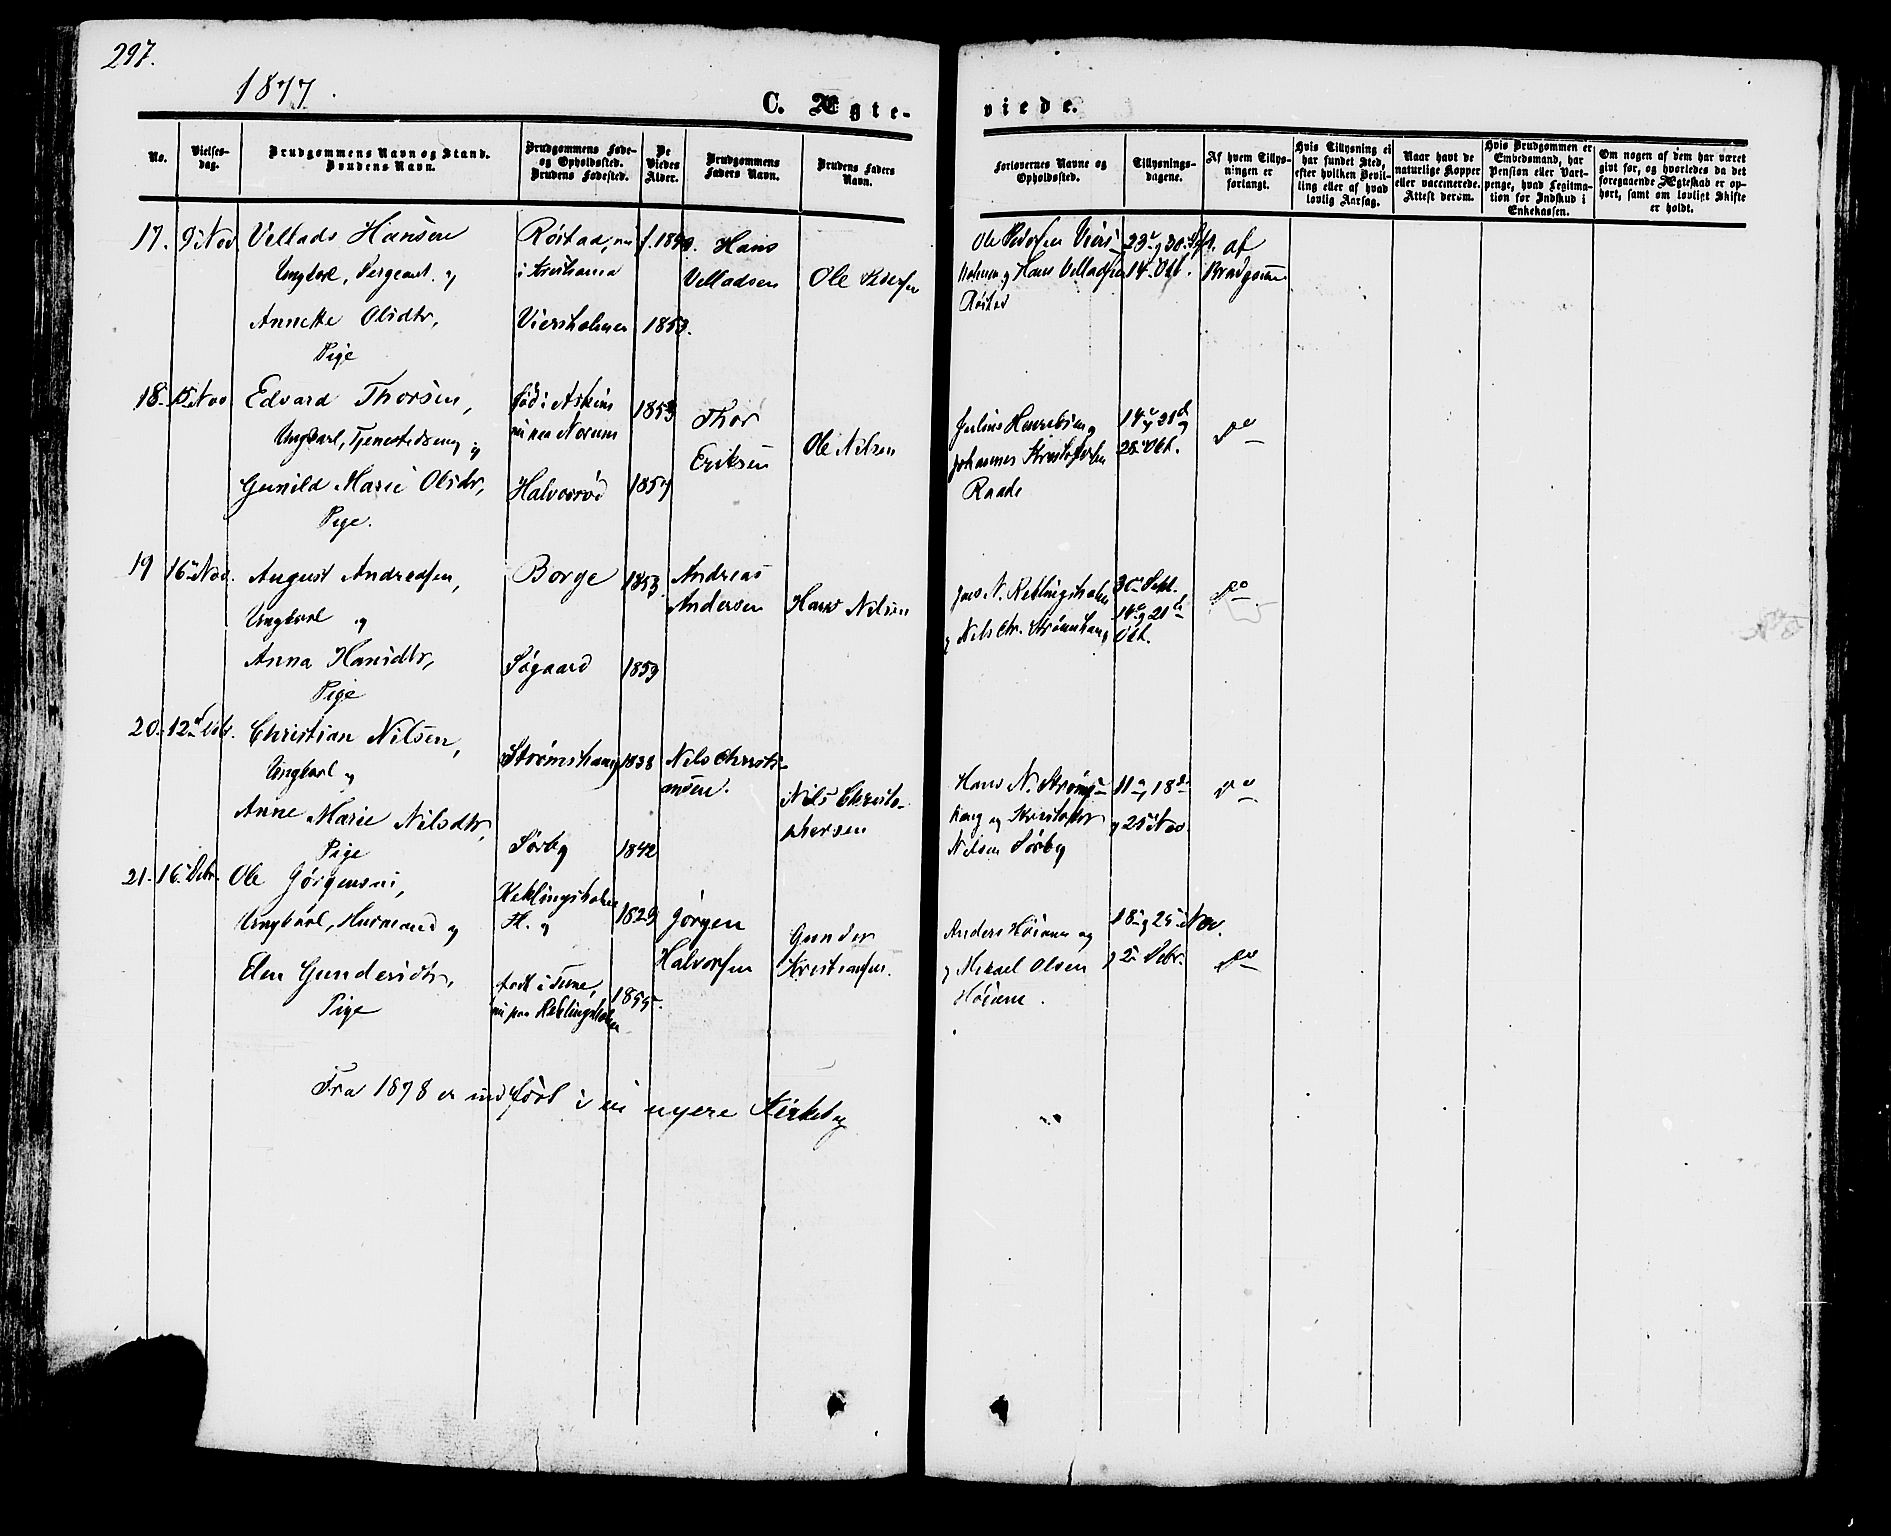 297.
1877.
C. Ægte-
viede.
No.
Vielses-
dag.
Brudgommens Navn og Stand.
Brudens Navn.
Brudgommens Føde-
og Opholdssted.
Brudens Fødested.
De
Viedes
Alder.
Brudgommens
Faders Navn.
Brudens Faders
Navn.
Forlovernes Navne og
Opholdssted.
Tillysnings-
dagene.
Af hvem Tillys-
ningen er
forlangt.
Hvis Tillysning ei
har fundet Sted,
efter hvilken Bevil-
ling eller af hvad
lovlig Aarsag.
Naar havt de
naturlige Kopper
eller vaccinerede.
Attest derom.
Hvis Brudgommen er
Embedsmand, har
Pension eller Vart-
penge, hvad Legitima-
tion for Indskud i
Enkekassen.
Om nogen af dem har været
givt før, og hvorledes da det
foregaaende Ægteskab er op-
hørt, samt om lovligt Skifte
er holdt.
17. 9 Nov Vellads Hansen
Ungkarl, Sergeant. og
Annette Olsdtr,
Pige
Röstad, nu
i Kristiania
Viersholmen
1853.
Hans
Velladsen
Ole Pedersen
Ole Pedersen Viers-
holmen og Hans Velladsen
Röstad
23 og 30 Sept.
14 Okt.
af
Brudgommen
18. 15 Nov Edvard Thorsen,
Ungkarl, Tjenestedreng og
Gunild Marie Olsdtr,
Pige.
född i Askim
nu paa Norum
Halvorsrød
1853
1857
Thor
Eriksen
Ole Nilsen
Johannes Kristofersen
Raade
14 og 21
28 Okt.
do
19 16 Nov. August Andreasen,
Ungkarl og
Anna Hansdtr,
Pige
Borge
Søgaard
1853.
1859
Andreas
Andersen
Hans Nilsen
Jens N. Keklingsholen
og Nils Chr. Strömshaug
30 Sept.
14 og 21
Okt.
do
20. 12 Debr. Christian Nilsen,
Ungkarl og
Anne Marie Nilsdtr,
Pige
Strömshaug
Sörby
1838
1842
Nils Christi-
ansen.
Nils Christo-
phersen
Hans N. Ströms-
haug og Kristofer
Nilsen Sörby
11 og 18
og 25 Nov
do
21. 16 Debr. Ole Jörgensen,
Ungkarl, Husmand og
Elen Gundersdtr,
Pige
Keklingsholen
Pl. og
født i Tune,
nu paa Keklingsholen
1829
1855.
Jörgen
Halvorsen
Gunder
Kristiansen.
Anders Höiene og
og Mikael Olsen
Höiene.
18 og 25 Nov.
og 2 Debr.
do
Fra 1878 er indført i en nyere Kirkebog